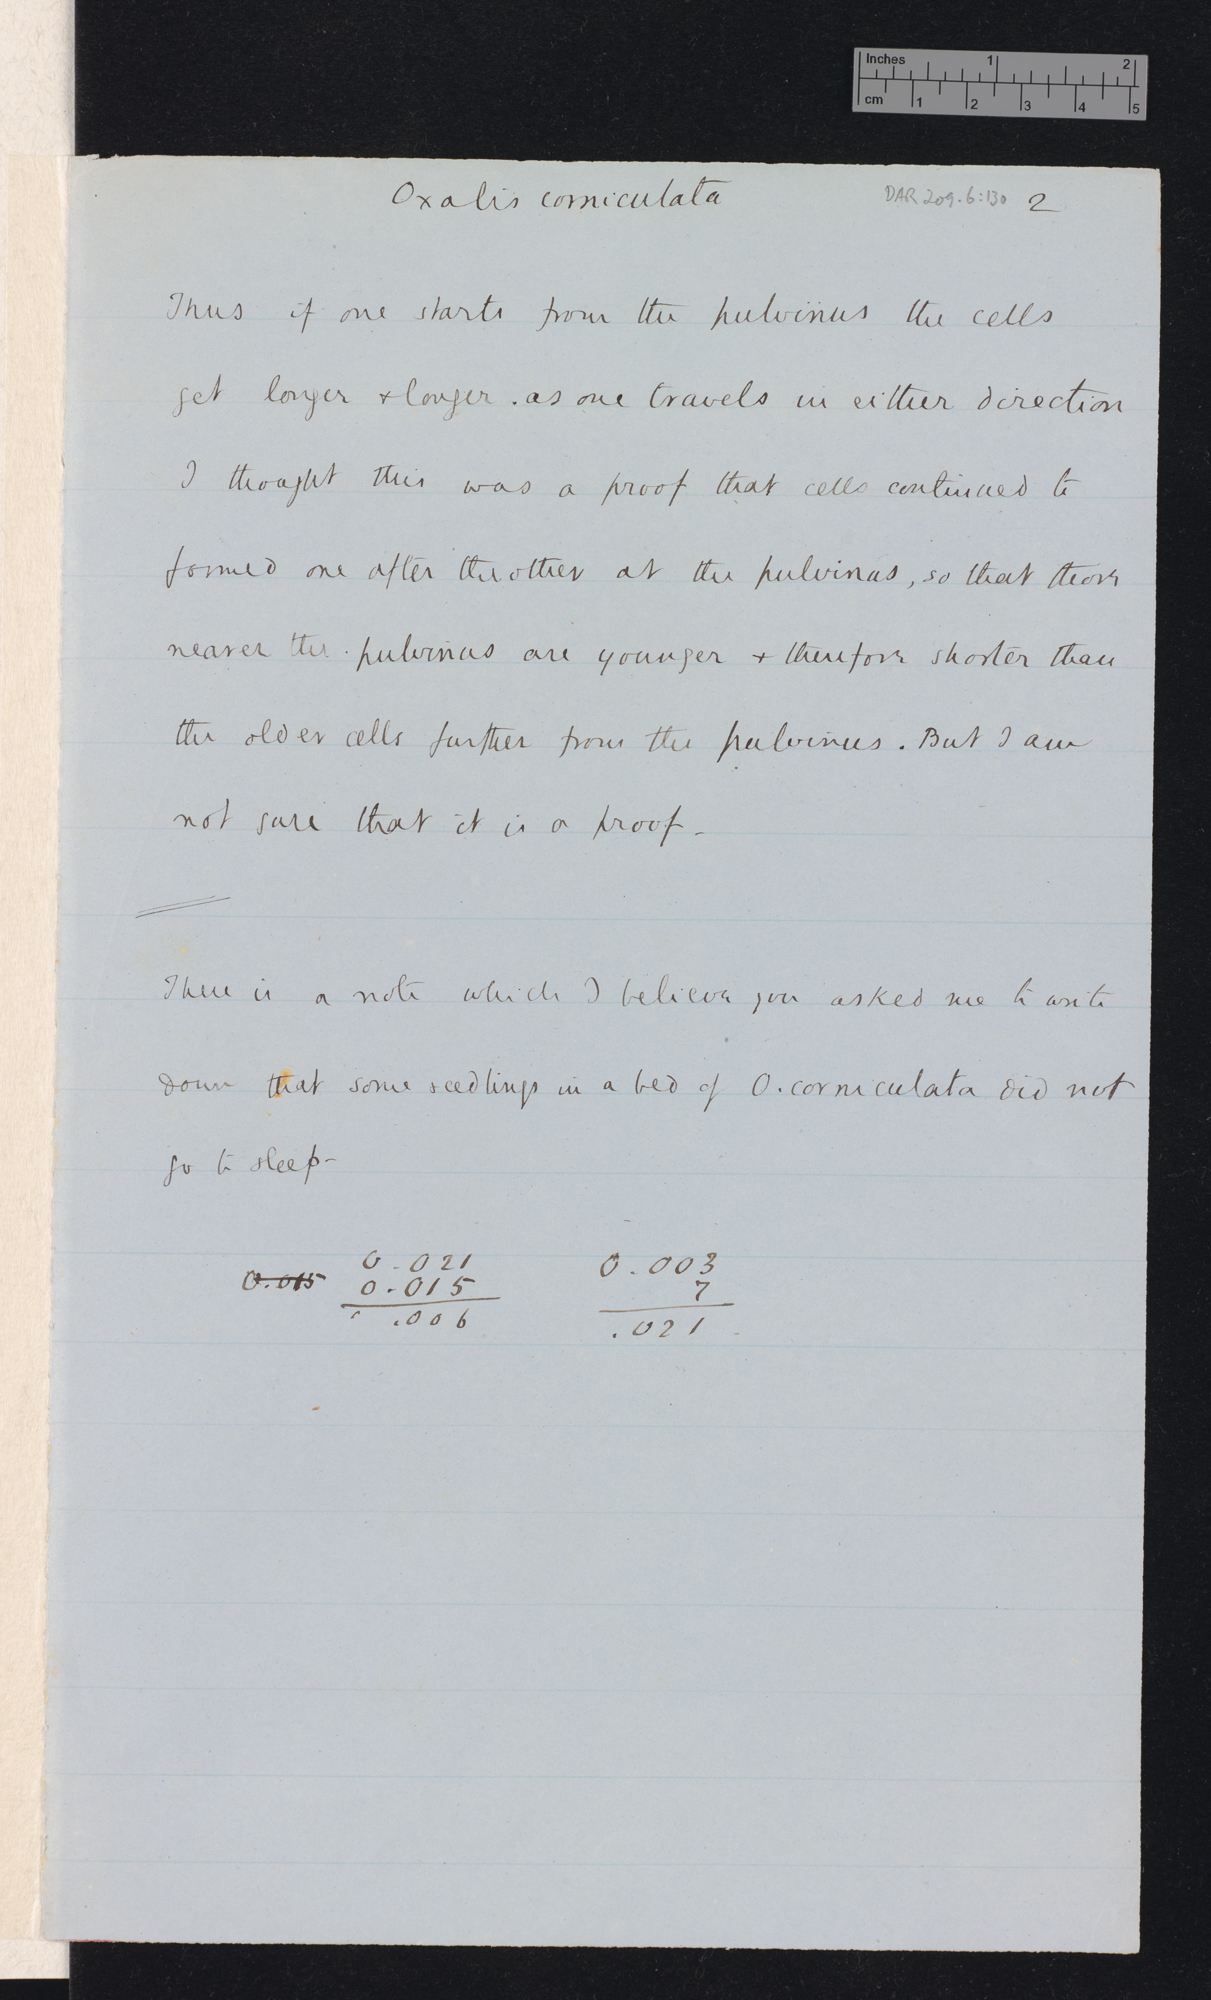 Inches 1 2
cm 1 2 3 4 5
Oxalis corniculata DAR 209.6:130 2
Thus if one starts from the pulvinus the cells
get longer & longer . as one travels in either direction
I thought this was a proof that cells continued to
formed one after the other at the pulvinus, so that those
nearer the pulvinus are younger & therefore shorter than
the older cells further from the pulvinus. But I am
not sure that it is a proof -
There is a note which I believe you asked me to write
down that some seedlings in a bed of O. corniculata did not
go to sleep -
0.021 0.003
0.015 0.015 7
.006 .021